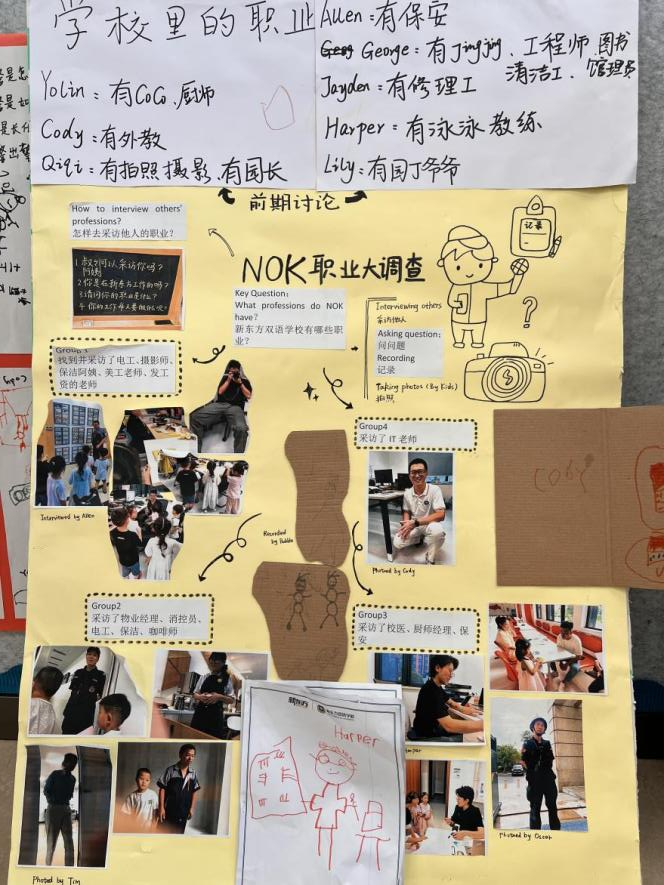 学校里的职业
Allen：有保安
George：有Jingjing、工程师 图书
清洁工、馆理员
Yolin：有CoCo、厨师
Jayden：有修理工
Cody：有外教
Harper：有泳泳教练
Qiqi：有拍照摄影、有园长
Lily：有园丁爷爷
前期讨论
How to interview others'
professions?
怎样去采访他人的职业？
阿姨
2 你是在新东方工作的吗？
3 请问你的职业是什么？
NOK职业大调查
记录
Key Question：
What professions do NOK
have?
新东方双语学校有哪些职
业？
Interviewing others
采访他人
Asking question:
问问题
Recording
记录
Taking photos (By Kids)
拍照
找到并采访了电工、摄影师、
保洁阿姨、美工老师、发工
资的老师
Interviewed by Allen
Group4
采访了 IT 老师
Photoed by Cody
Recorded
by Bubble
Cody
Group2
采访了物业经理、消控员、
电工、保洁、咖啡师
Group3
采访了校医、厨师经理、保
安
新东方
Harper
Photoed by Oscar
Photoed by Tim